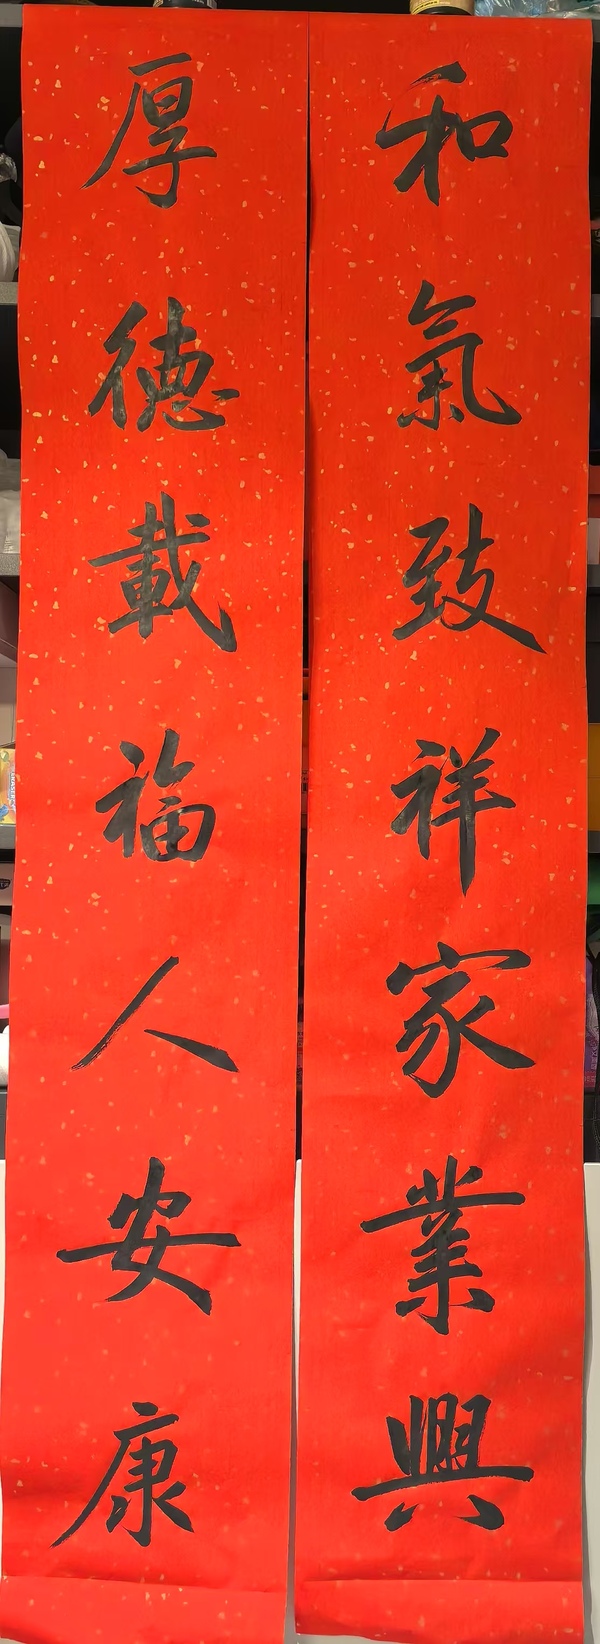 和氣致祥家業興
厚德載福人安康